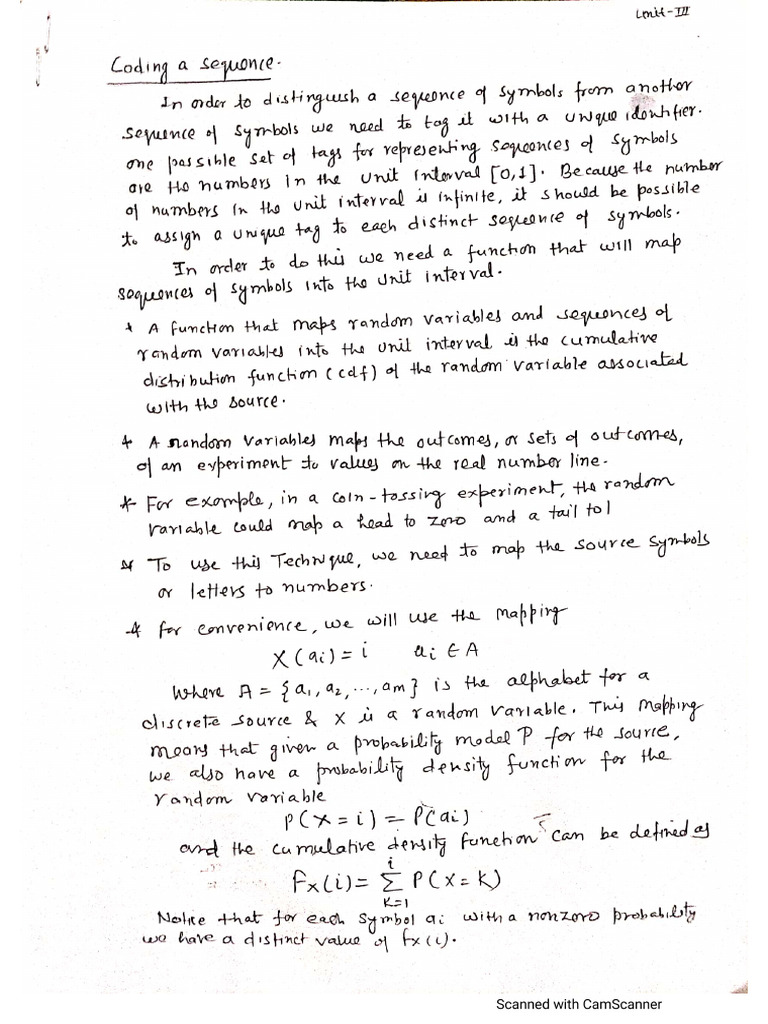 Unit-III
Coding a sequence.
In order to distinguish a sequence of symbols from another
sequence of symbols we need to tag it with a unique identifier.
one possible set of tags for representing sequences of symbols
are the numbers in the unit interval [0,1]. Because the number
of numbers in the unit interval is infinite, it should be possible
to assign a unique tag to each distinct sequence of symbols.
In order to do this we need a function that will map
sequences of symbols into the unit interval.
* A function that maps random variables and sequences of
random variables into the unit interval is the cumulative
distribution function (cdf) of the random variable associated
with the source.
* A random variables maps the outcomes, or sets of outcomes,
of an experiment to values on the real number line.
* For example, in a coin-tossing experiment, the random
variable could map a head to zero and a tail to 1
* To use this Technique, we need to map the source symbols
or letters to numbers.
* for convenience, we will use the mapping
X(ai) = i ai ∈ A
where A = {a1, a2, ..., am} is the alphabet for a
discrete source & X is a random variable. This mapping
means that given a probability model P for the source,
we also have a probability density function for the
random variable
P(X = i) = P(ai)
and the cumulative density function can be defined as
Fx(i) = Σ i k=1 P(X = k)
Notice that for each symbol ai with a nonzero probability
we have a distinct value of fx(i).
Scanned with CamScanner